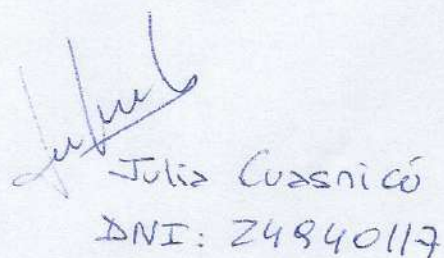 Julia Cuasnicó
DNI: 24940117